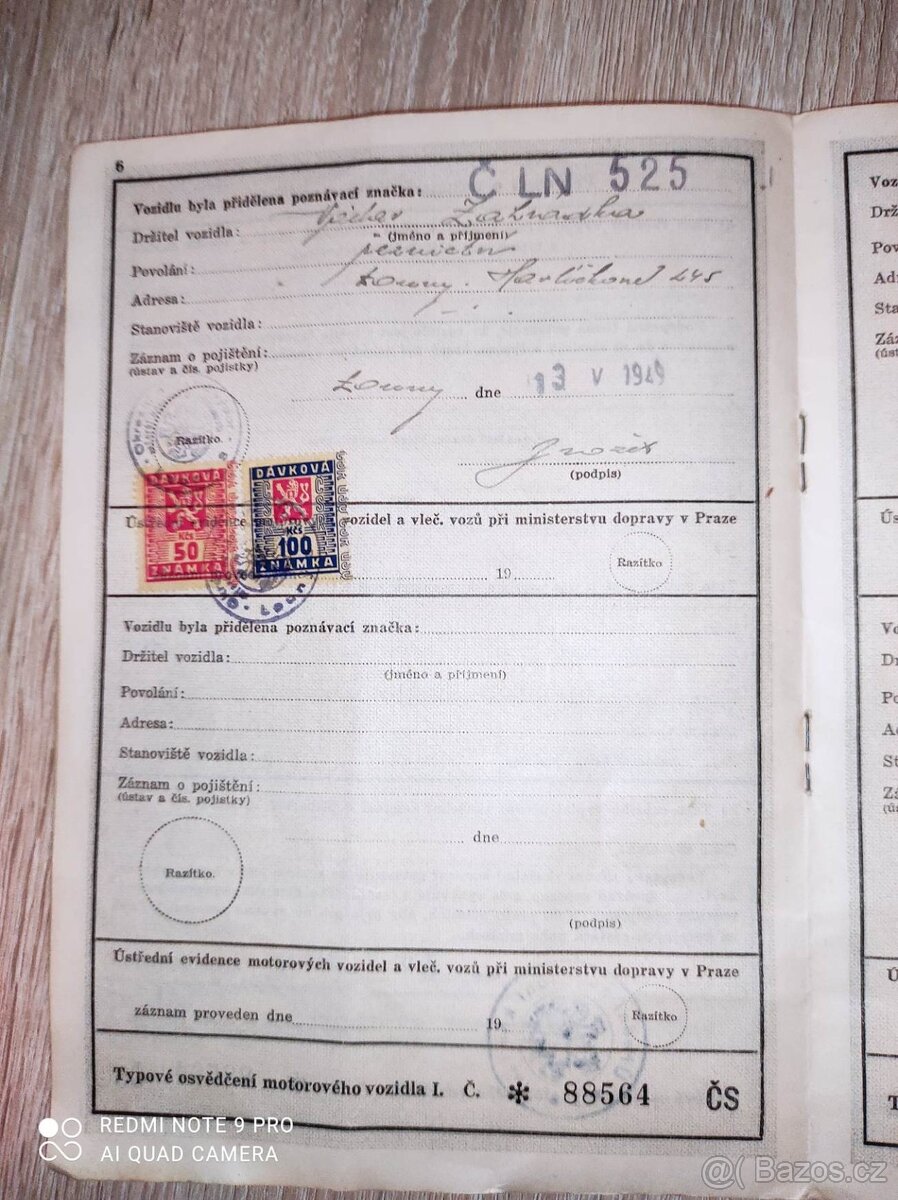 6
Vozidlu byla přidělena poznávací značka: Č LN 525
Držitel vozidla:
(jméno a příjmení)
Povolání:
Adresa: Louny. 245
Stanoviště vozidla:
Záznam o pojištění:
(ústav a čís. pojistky)
Louny dne 13 V 1949
Razítko.
(podpis)
DÁVKOVÁ
Kčs
50
ZNÁMKA
DÁVKOVÁ
Kčs
100
ZNÁMKA
vozidel a vleč. vozů při ministerstvu dopravy v Praze
19
Razítko
Vozidlu byla přidělena poznávací značka:
Držitel vozidla:
(jméno a příjmení)
Povolání:
Adresa:
Stanoviště vozidla:
Záznam o pojištění:
(ústav a čís. pojistky)
dne
Razítko.
(podpis)
Ústřední evidence motorových vozidel a vleč. vozů při ministerstvu dopravy v Praze
záznam proveden dne 19
Razítko
Typové osvědčení motorového vozidla I. Č. * 88564 ČS
REDMI NOTE 9 PRO
AI QUAD CAMERA
@( Bazos.cz